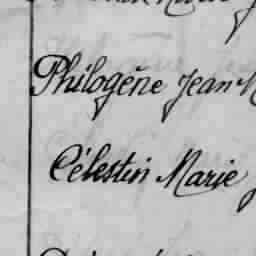 Philogène Jean M
Célestin Marie